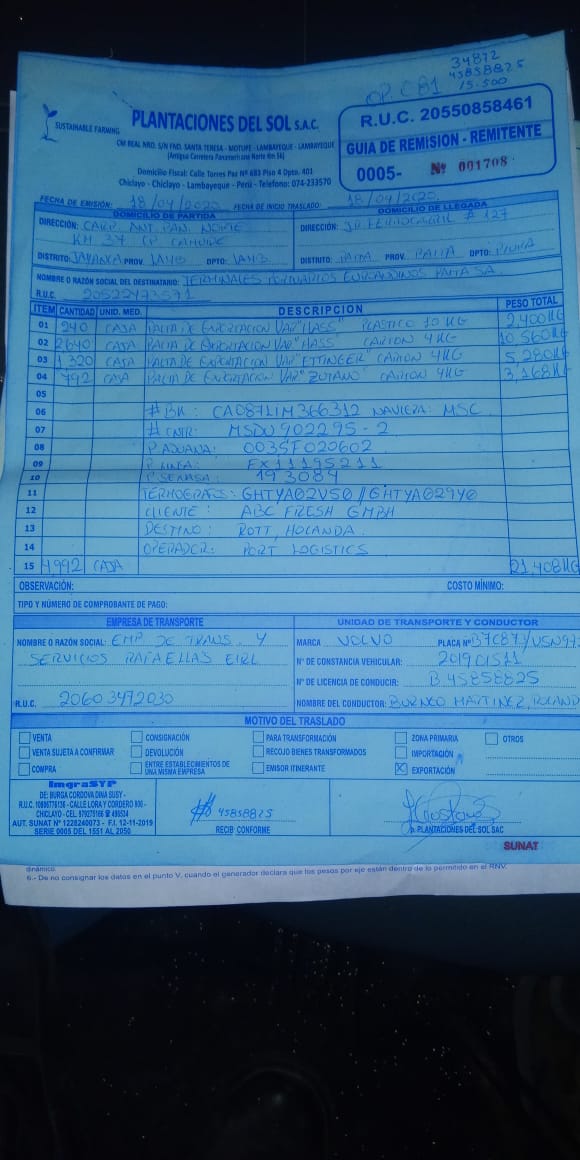 34872
45858825
OP. C81 15-500
SUSTAINABLE FARMING
PLANTACIONES DEL SOL S.A.C.
CM REAL NRO. S/N FND. SANTA TERESA - MOTUPE - LAMBAYEQUE - LAMBAYEQUE
(Antigua Carretera Panamericana Norte Km 34)
Domicilio Fiscal: Calle Torres Paz Nº 683 Piso 4 Dpto. 401
Chiclayo - Chiclayo - Lambayeque - Perú - Telefono: 074-233570
R.U.C. 20550858461
GUIA DE REMISION - REMITENTE
0005- Nº 001708
FECHA DE EMISIÓN: 18/04/2020 FECHA DE INICIO TRASLADO: 18/04/2020
DOMICILIO DE PARTIDA
DIRECCIÓN: CARR. ANT. PAN. NORTE
KM 34 CP
DISTRITO: JAYANCA PROV. LAMB DPTO: LAMB
DOMICILIO DE LLEGADA
DIRECCIÓN: JR FERROCARRIL # 127
DISTRITO: PAITA PROV. PAITA DPTO: PIURA
NOMBRE O RAZÓN SOCIAL DEL DESTINATARIO: TERMINALES PORTUARIOS EUROANDINOS PAITA SA.
R.U.C. 20522473571
ITEM CANTIDAD UNID. MED. DESCRIPCION PESO TOTAL
01 240 CAJA PALTA DE EXPORTACION VAR "HASS" PLASTICO 10 KG 2,400KG
02 2640 CAJA PALTA DE EXPORTACION VAR "HASS" CARTON 4KG 10,560KG
03 1,320 CAJA PALTA DE EXPORTACION VAR "ETTINGER" CARTON 4KG 5,280KG
04 792 CAJA PALTA DE EXPORTACION VAR. "ZUTANO" CARTON 4KG 3,168KG
05
06 # BK: CA0871IM366312 NAVIERA: MSC
07 # CNTR: MSDU 902295-2
08 P. ADUANA: 0035F020602
09 P. LINEA: FX11195211
10 P. SENASA: 193084
11 TERMOGRAFS: GHTYA02V50 // GHTYA029Y0
12 CLIENTE: ABC FRESH GMBH
13 DESTINO: ROTT, HOLANDA
14 OPERADOR: PORT LOGISTICS
15 4,992 CAJA 21,408KG
OBSERVACIÓN: COSTO MÍNIMO:
TIPO Y NÚMERO DE COMPROBANTE DE PAGO:
EMPRESA DE TRANSPORTE
NOMBRE O RAZÓN SOCIAL: EMP DE TRANS. Y
SERVICIOS RAFAELLAS EIRL
R.U.C. 20603472030
UNIDAD DE TRANSPORTE Y CONDUCTOR
MARCA VOLVO PLACA Nº B7C87
Nº DE CONSTANCIA VEHICULAR:
Nº DE LICENCIA DE CONDUCIR: B 45858825
NOMBRE DEL CONDUCTOR: MARTINEZ, ROLAND
MOTIVO DEL TRASLADO
VENTA CONSIGNACIÓN PARA TRANSFORMACIÓN ZONA PRIMARIA OTROS
VENTA SUJETA A CONFIRMAR DEVOLUCIÓN RECOJO BIENES TRANSFORMADOS IMPORTACIÓN
COMPRA ENTRE ESTABLECIMIENTOS DE UNA MISMA EMPRESA EMISOR ITINERANTE X EXPORTACIÓN
ImgraSYP
DE: BURGA CORDOVA DINA SUSY -
R.U.C. 10806776136 - CALLE LORA Y CORDERO 800 -
CHICLAYO - CEL. 979275166
AUT. SUNAT Nº 1228240073 - F.I. 12-11-2019
SERIE 0005 DEL 1551 AL 2050
45858825
RECIBI CONFORME
p. PLANTACIONES DEL SOL SAC
SUNAT
dinámico.
6.- De no consignar los datos en el punto V, cuando el generador declara que los pesos por eje están dentro de lo permitido en el RNV.